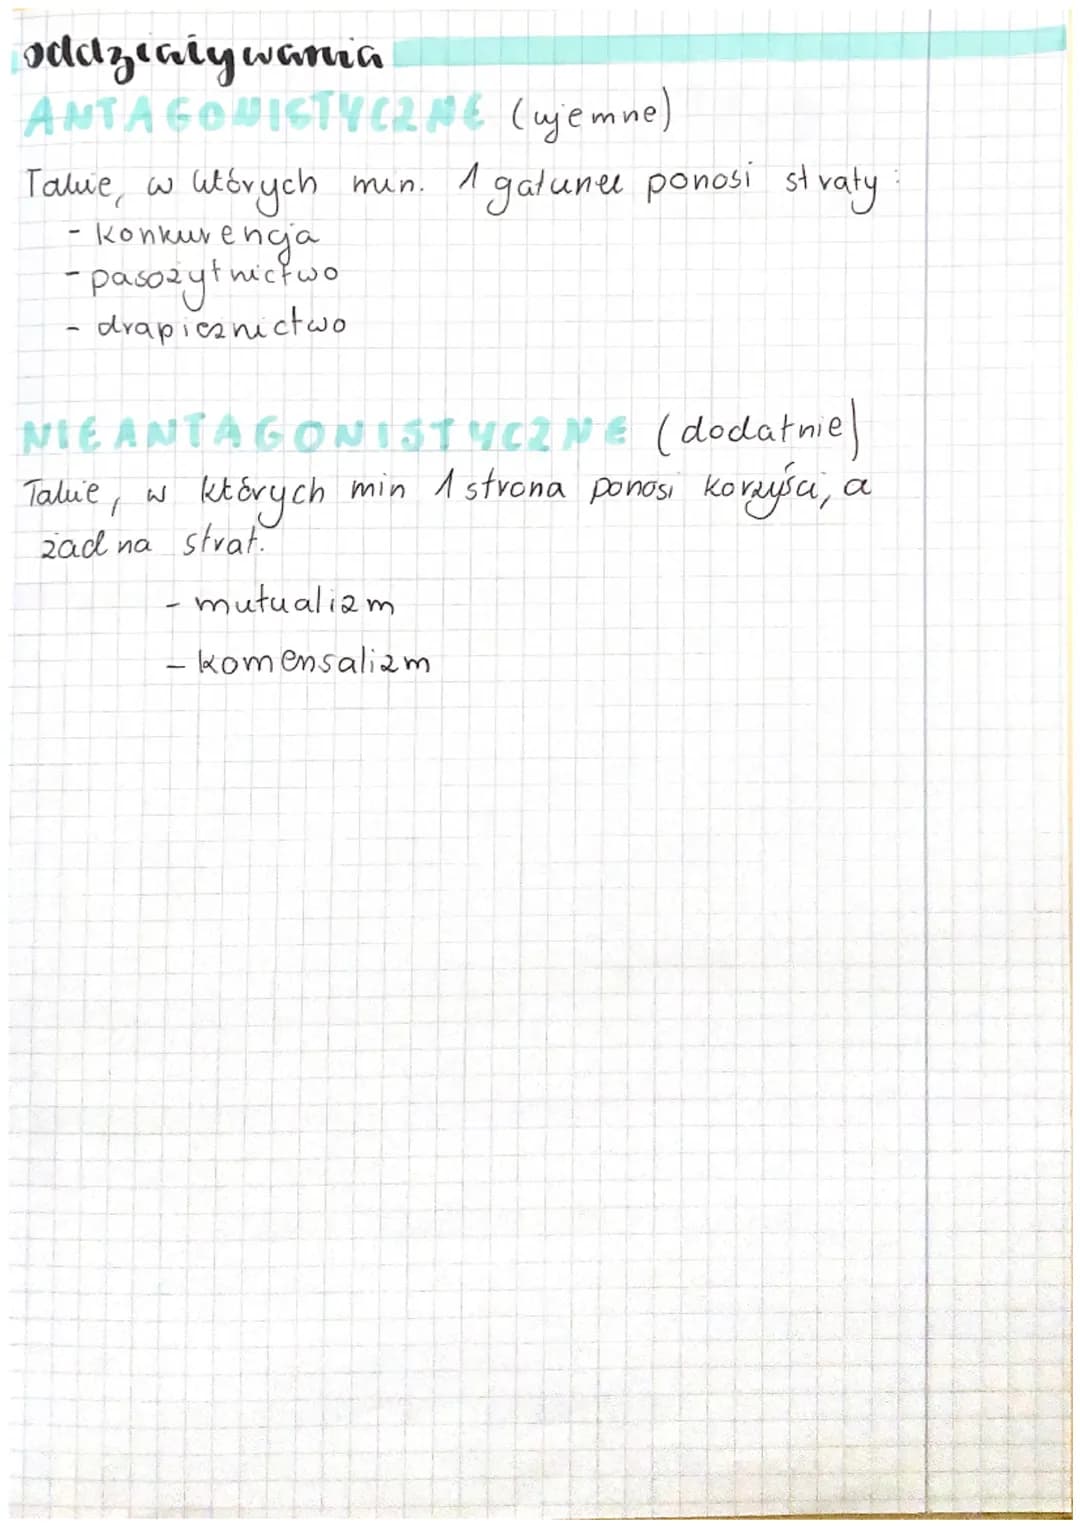 oddziaływania
ANTAGONISTYCZNE (ujemne)
Takie, w których min. 1 gatunek ponosi straty:
- konkurencja
- pasożytnictwo
- drapieżnictwo
NIEANTAGONISTYCZNE (dodatnie)
Takie, w których min 1 strona ponosi korzyści, a
żadna strat.
- mutualizm
- komensalizm